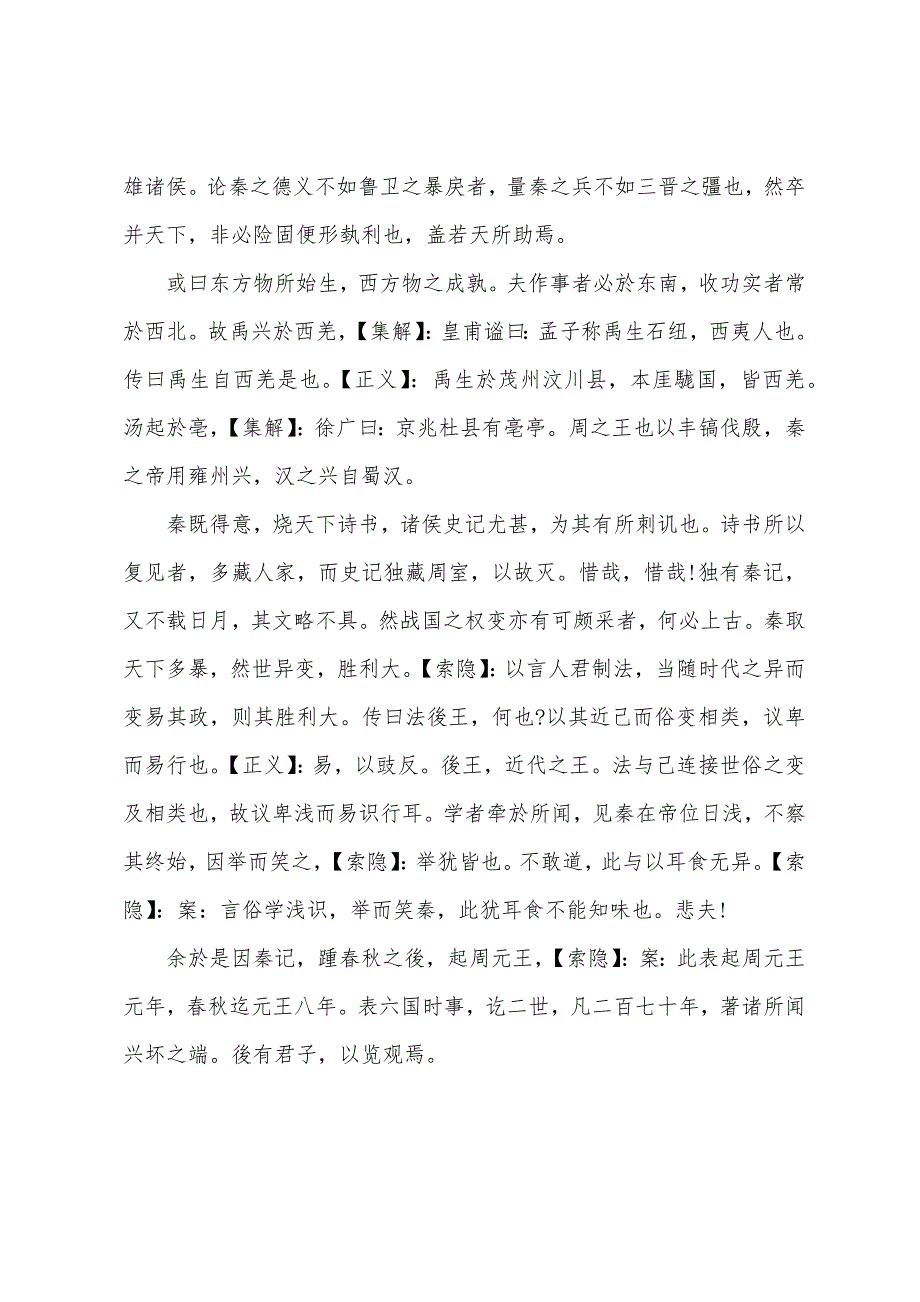 雄诸侯。论秦之德义不如鲁卫之暴戾者，量秦之兵不如三晋之彊也，然卒
并天下，非必险固便形埶利也，盖若天所助焉。
或曰东方物所始生，西方物之成孰。夫作事者必於东南，收功实者常
於西北。故禹兴於西羌，【集解】：皇甫谧曰：孟子称禹生石纽，西夷人也。
传曰禹生自西羌是也。【正义】：禹生於茂州汶川县，本厓駹国，皆西羌。
汤起於亳，【集解】：徐广曰：京兆杜县有亳亭。周之王也以丰镐伐殷，秦
之帝用雍州兴，汉之兴自蜀汉。
秦既得意，烧天下诗书，诸侯史记尤甚，为其有所刺讥也。诗书所以
复见者，多藏人家，而史记独藏周室，以故灭。惜哉，惜哉!独有秦记，
又不载日月，其文略不具。然战国之权变亦有可颇采者，何必上古。秦取
天下多暴，然世异变，胜利大。【索隐】：以言人君制法，当随时代之异而
变易其政，则其胜利大。传曰法後王，何也?以其近己而俗变相类，议卑
而易行也。【正义】：易，以豉反。後王，近代之王。法与己连接世俗之变
及相类也，故议卑浅而易识行耳。学者牵於所闻，见秦在帝位日浅，不察
其终始，因举而笑之，【索隐】：举犹皆也。不敢道，此与以耳食无异。【索
隐】：案：言俗学浅识，举而笑秦，此犹耳食不能知味也。悲夫!
余於是因秦记，踵春秋之後，起周元王，【索隐】：案：此表起周元王
元年，春秋迄元王八年。表六国时事，讫二世，凡二百七十年，著诸所闻
兴坏之端。後有君子，以览观焉。